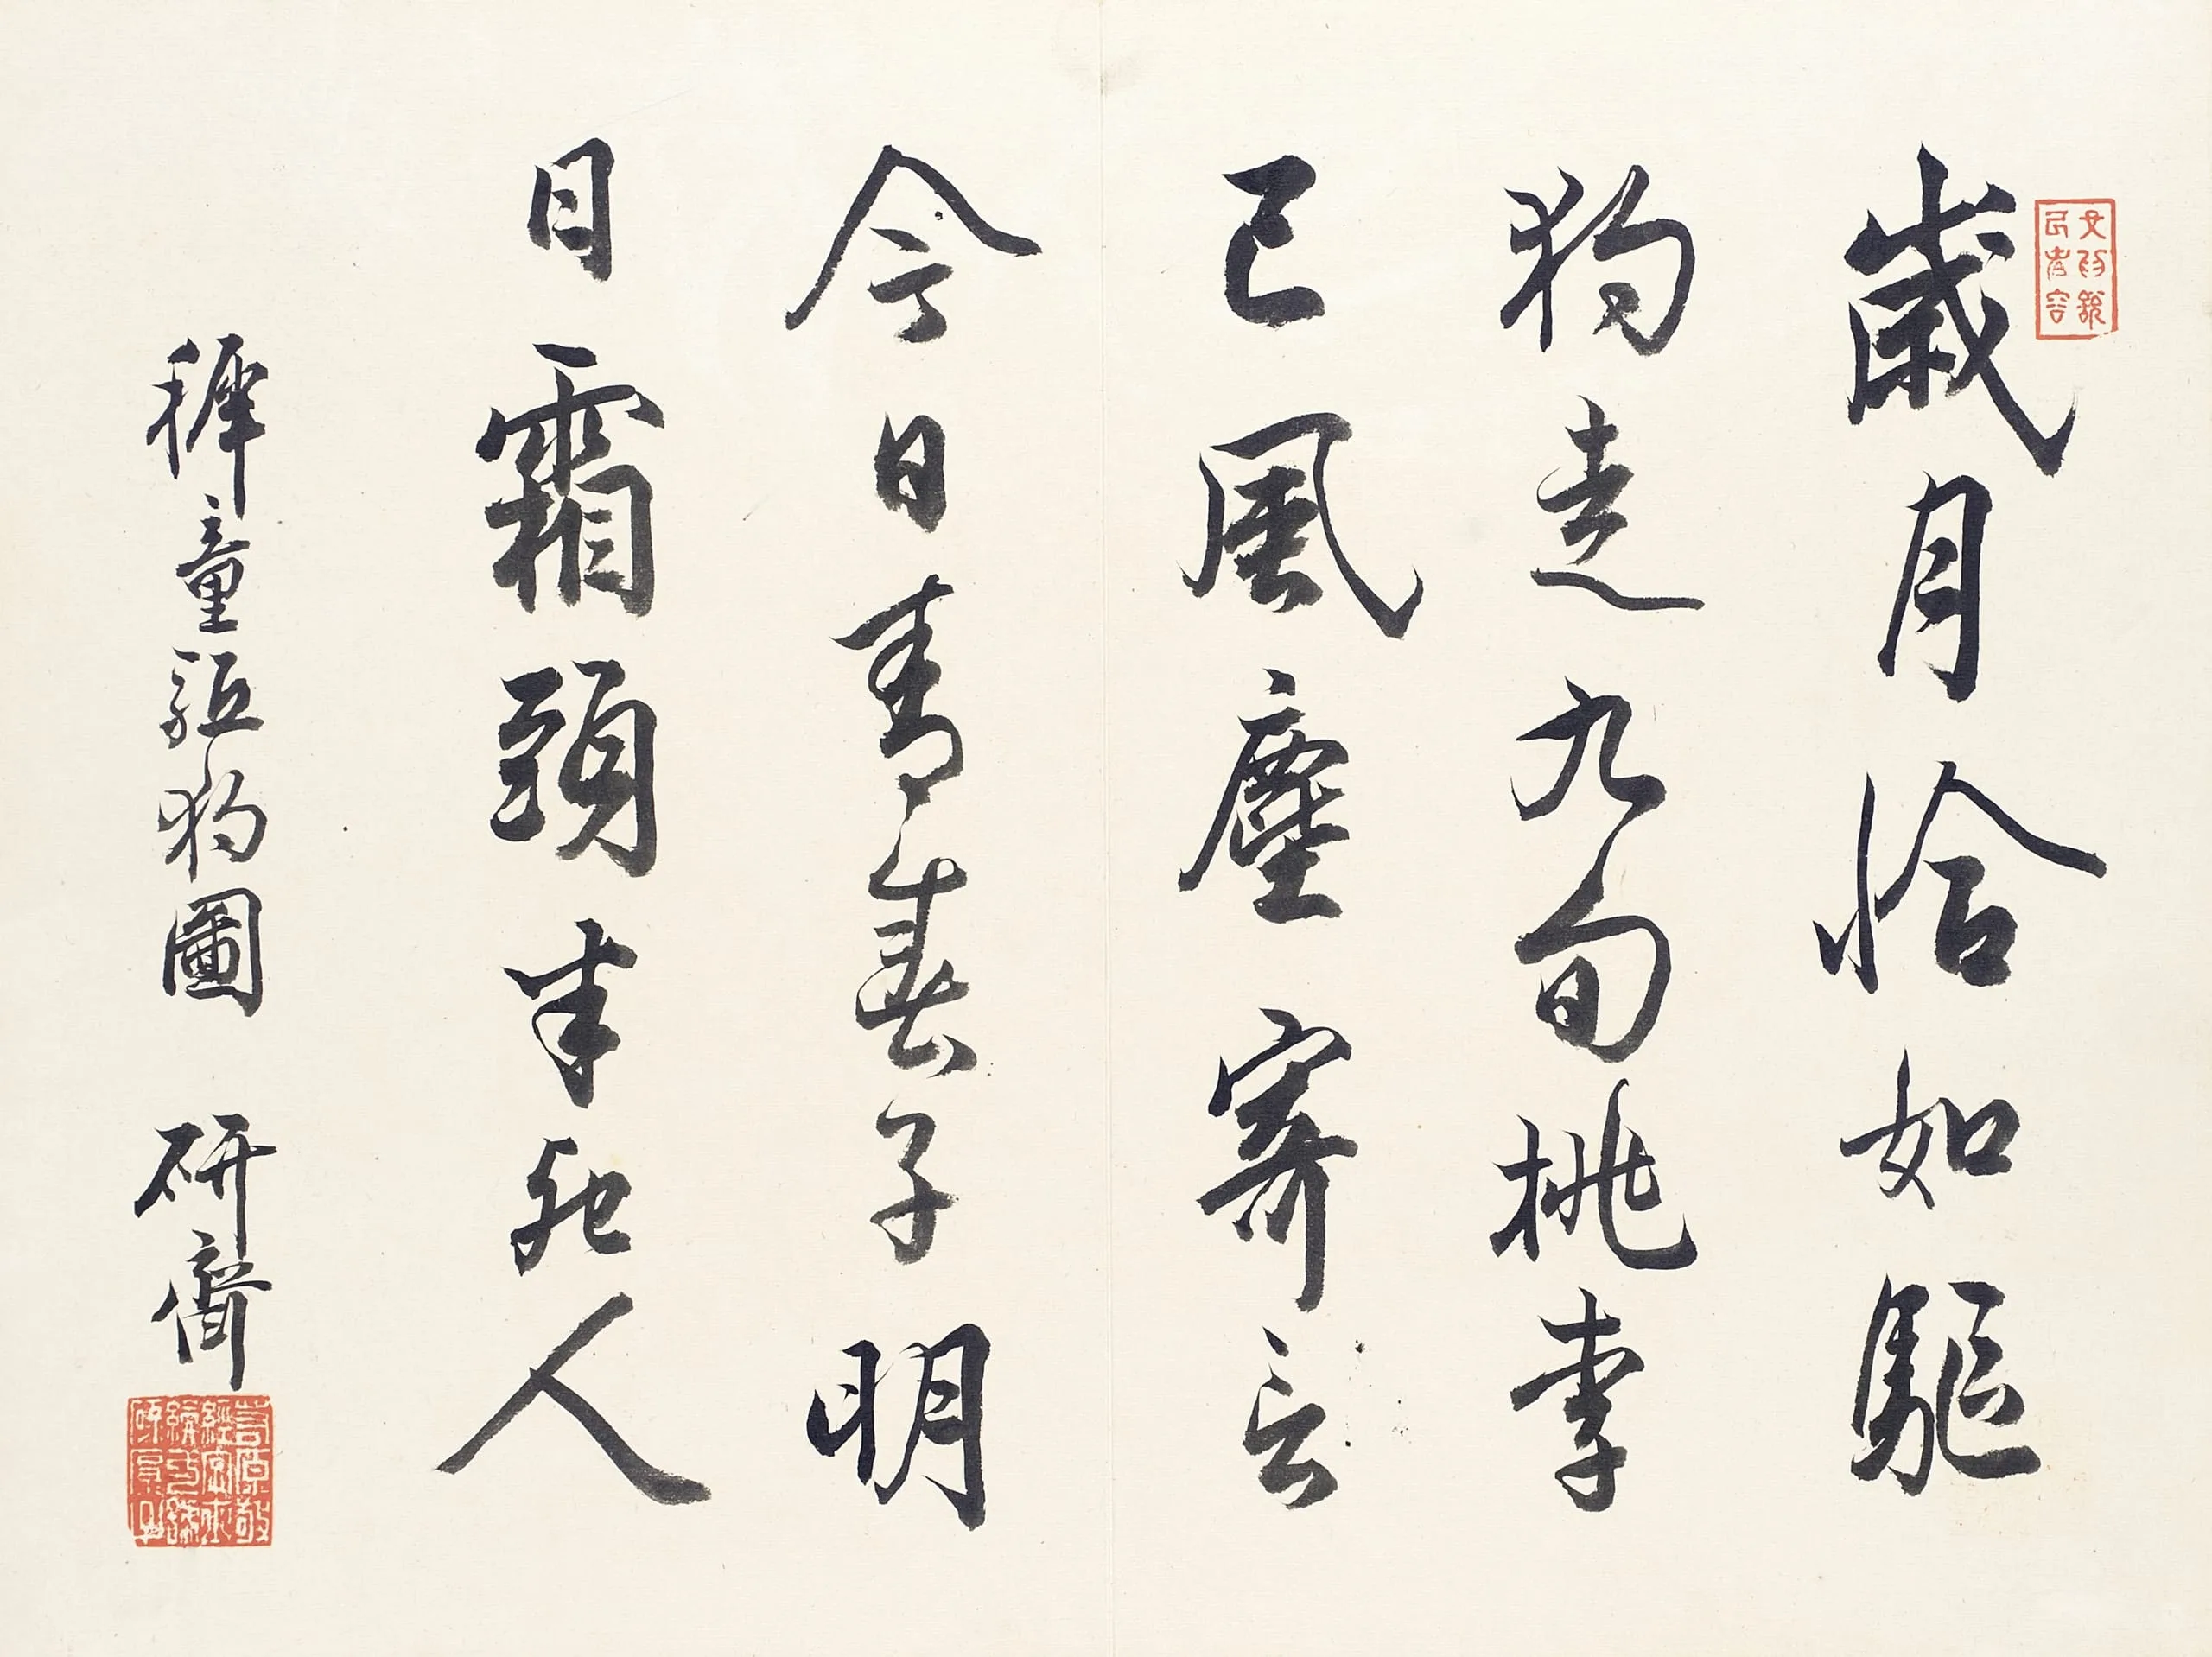 歲月恰如驅
狗走九旬桃李
已風塵寄言
今日青春子明
日霜頭半死人
稺童駈狗圖 研齋